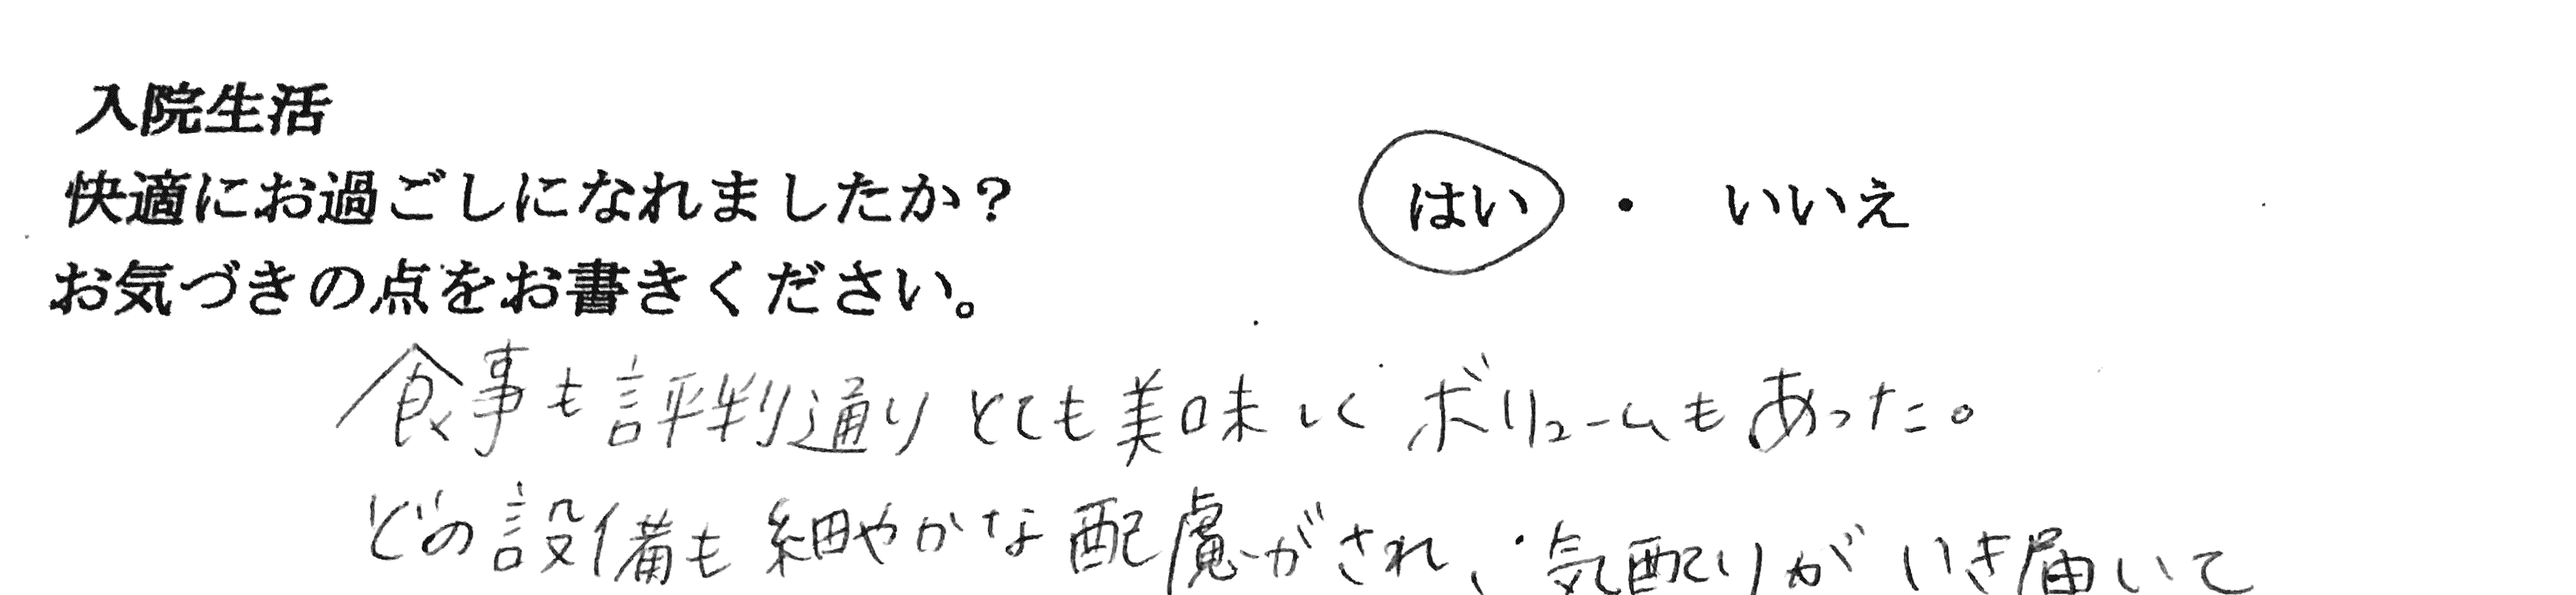 入院生活
快適にお過ごしになれましたか? はい ・ いいえ
お気づきの点をお書きください。
食事も評判通りとても美味しくボリュームもあった。
どの設備も細やかな配慮がされ、気配りがいき届いて